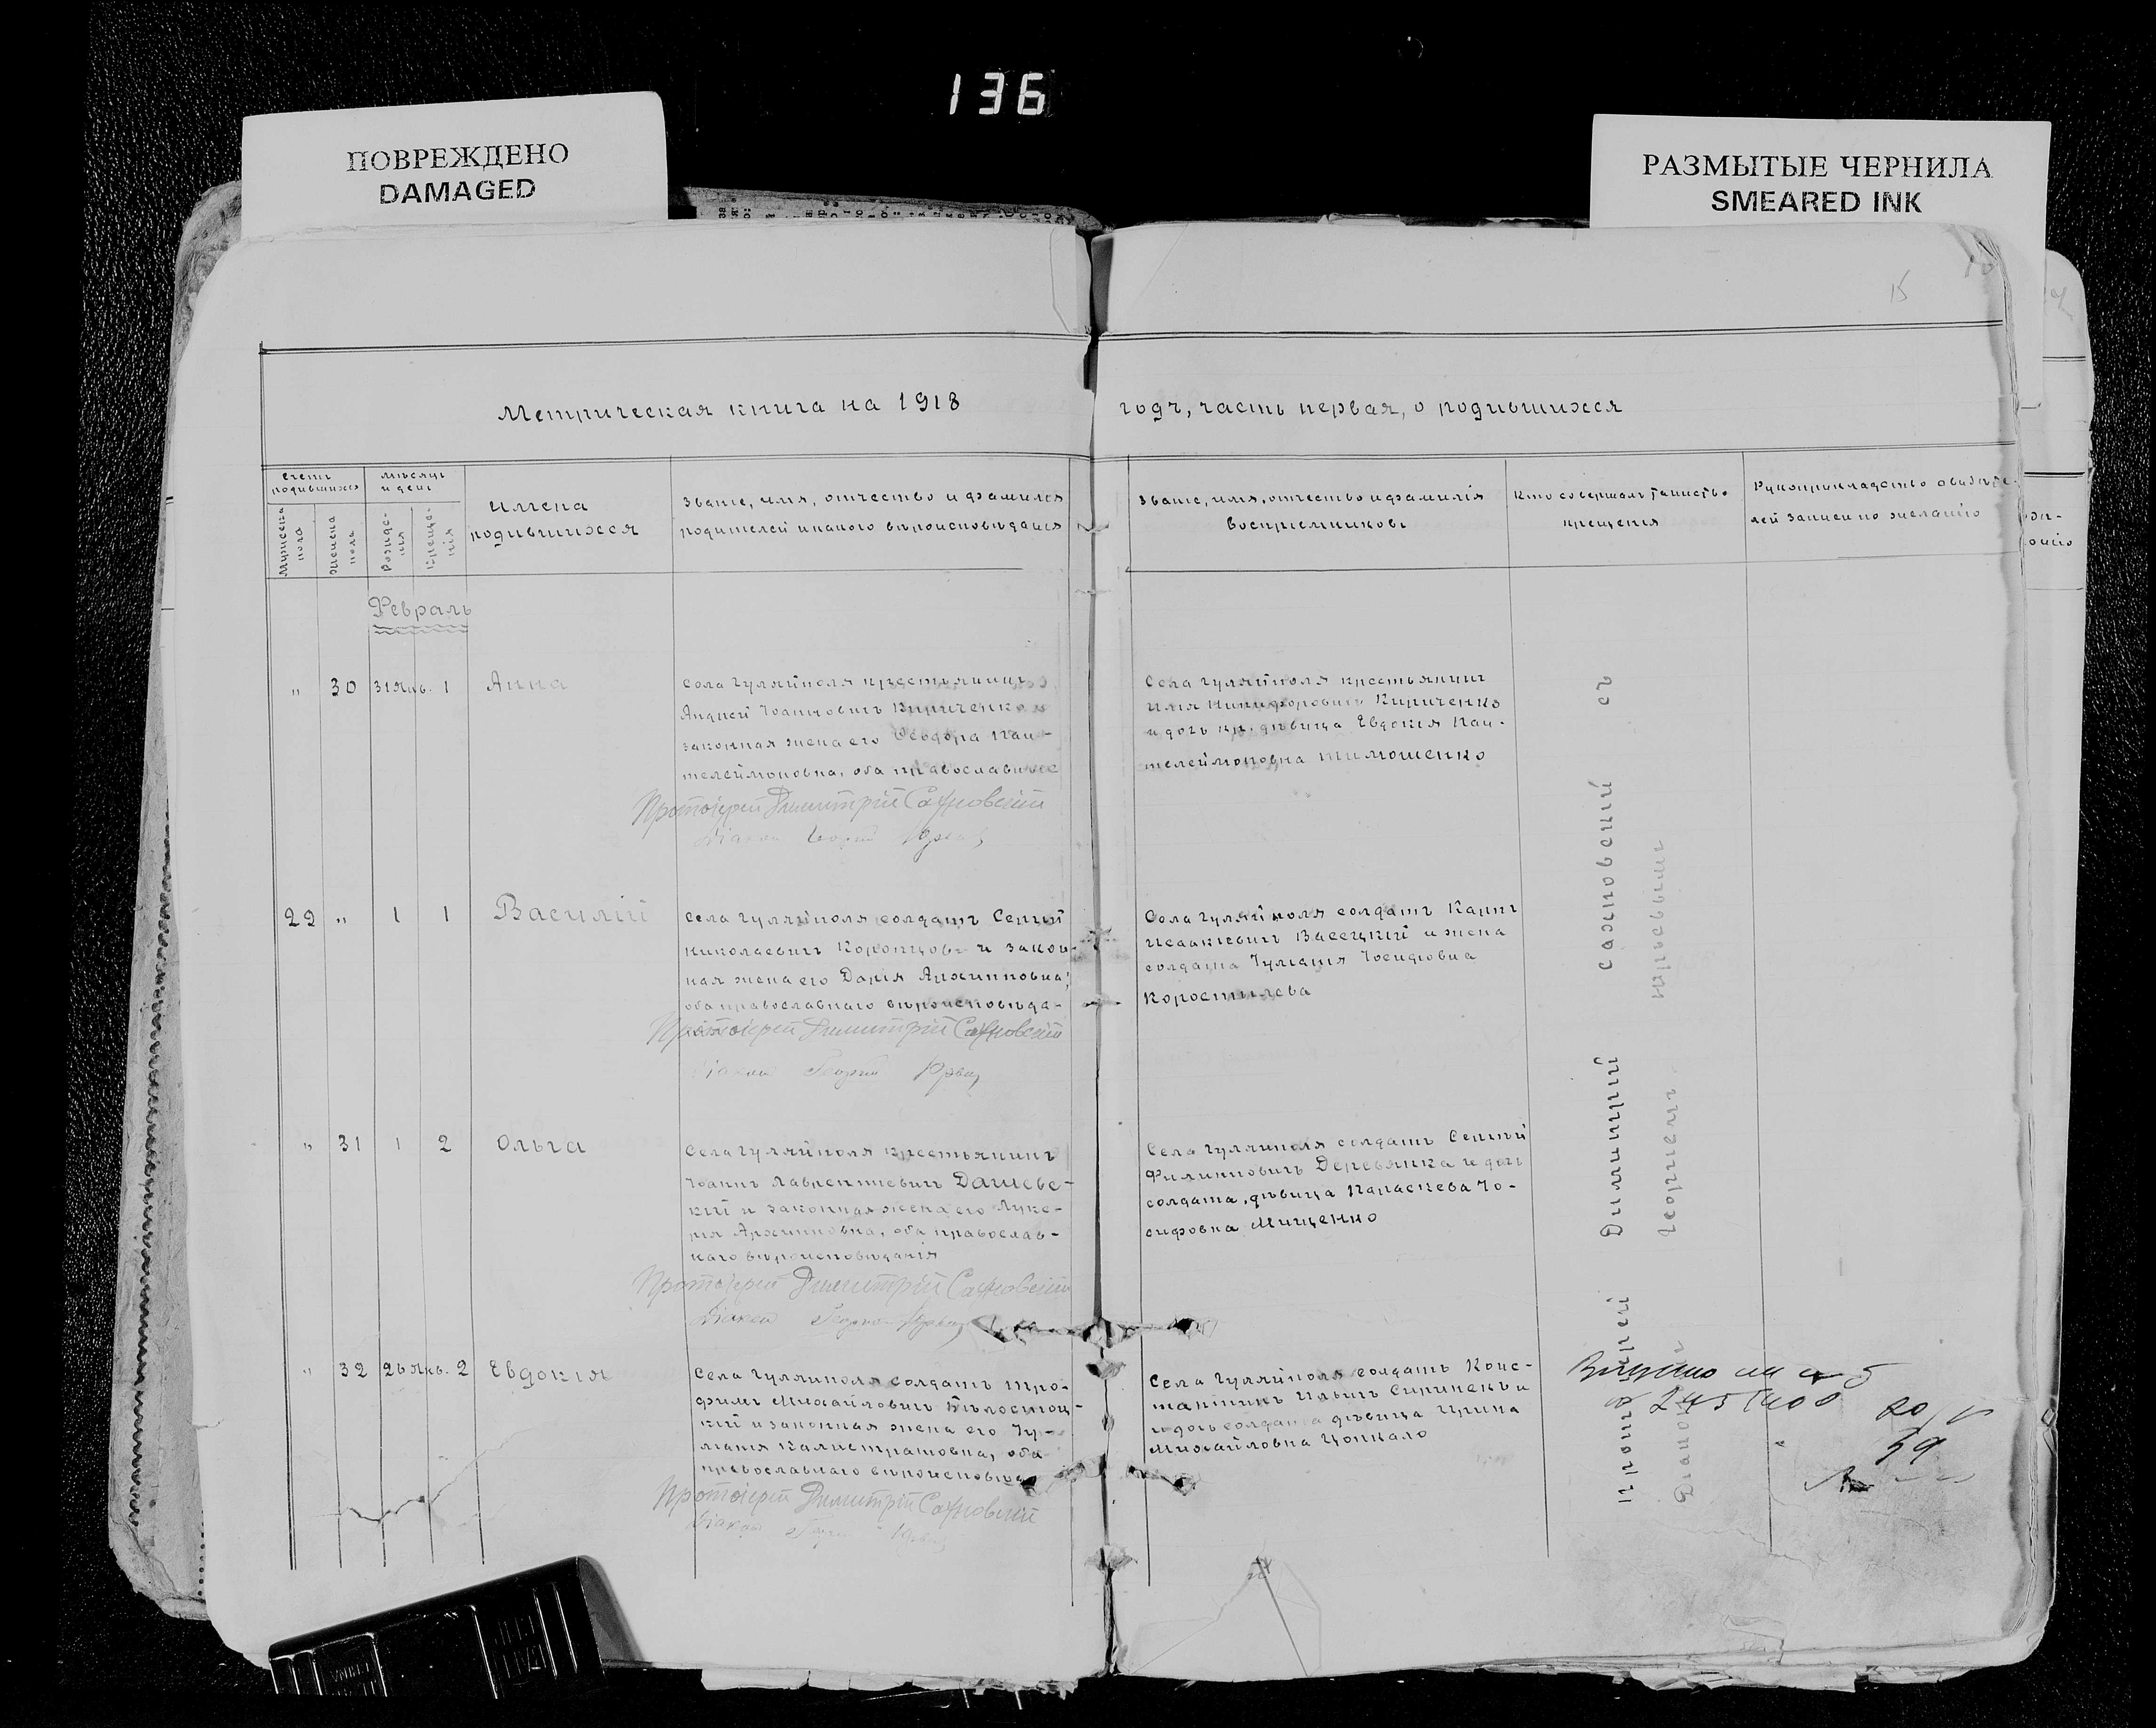 136
ПОВРЕЖДЕНО
DAMAGED
РАЗМЫТЫЕ ЧЕРНИЛА
SMEARED INK
15
Метрическая книга на 1918
годъ, часть первая, о родившихся
Счетъ родившихся
Мѣсяцъ и день
Мужеска пола
Женска пола
Рожде-
нія
Креще-
нія
Имена
родившихся
Званіе, имя, отчество и фамилія
родителей и какого вѣроисповѣданія
Званіе, имя, отчество и фамилія
воспріемниковъ
Кто совершалъ таинство
крещенія
Рукоприкладство свидѣте-
лей записи по желанію
Февраль
" 30 31 Янв. 1 Анна
Села Гуляйполя крестьянинъ
Андрей Іоанновичъ Кириченко
законная жена его Ѳеодора Пан-
телеймоновна, оба православнаго
Протоіерей Димитрій Сахновскій
Діаконъ Георгій Юрьевъ
Села Гуляйполя крестьянинъ
Илья Никифоровичъ Кириченко
и дочь кр. дѣвица Евдокія Пан-
телеймоновна Тимошенко
22 " 1 1 Василій
Села Гуляйполя солдатъ Сергій
Николаевичъ Коронцовъ и закон-
ная жена его Дарія Архипповна,
оба православнаго вѣроисповѣда-
Протоіерей Димитрій Сахновскій
Діаконъ Георгій Юрьевъ
Села Гуляйполя солдатъ Карпъ
Исаакіевичъ Васецкій и жена
солдата Іуліанія Іосифовна
Коростылева
" 31 1 2 Ольга
Села Гуляйполя крестьянинъ
Іоаннъ Лаврентіевичъ Даниев-
скій и законная жена его Луке-
рія Архипповна, оба православ-
наго вѣроисповѣданія
Протоіерей Димитрій Сахновскій
Діаконъ Георгій Юрьевъ
Села Гуляйполя солдатъ Сергій
Филипповичъ Деревянка и дочь
солдата, дѣвица Параскева Іо-
сифовна Мищенко
" 32 26 Янв. 2 Евдокія
Села Гуляйполя солдатъ Тро-
фимъ Михайловичъ Бѣлостоц-
кій и законная жена его Іу-
ліанія Калистратовна, оба
православнаго вѣроисповѣд
Протоіерей Димитрій Сахновскій
Діаконъ Георгій Юрьевъ
Села Гуляйполя солдатъ Конс-
тантинъ Ильичъ
и дочь солдата дѣвица Ирина
Михайловна Цопкало
Протоіерей Димитрій Сахновскій съ
Діакономъ Георгіемъ Юрьевымъ